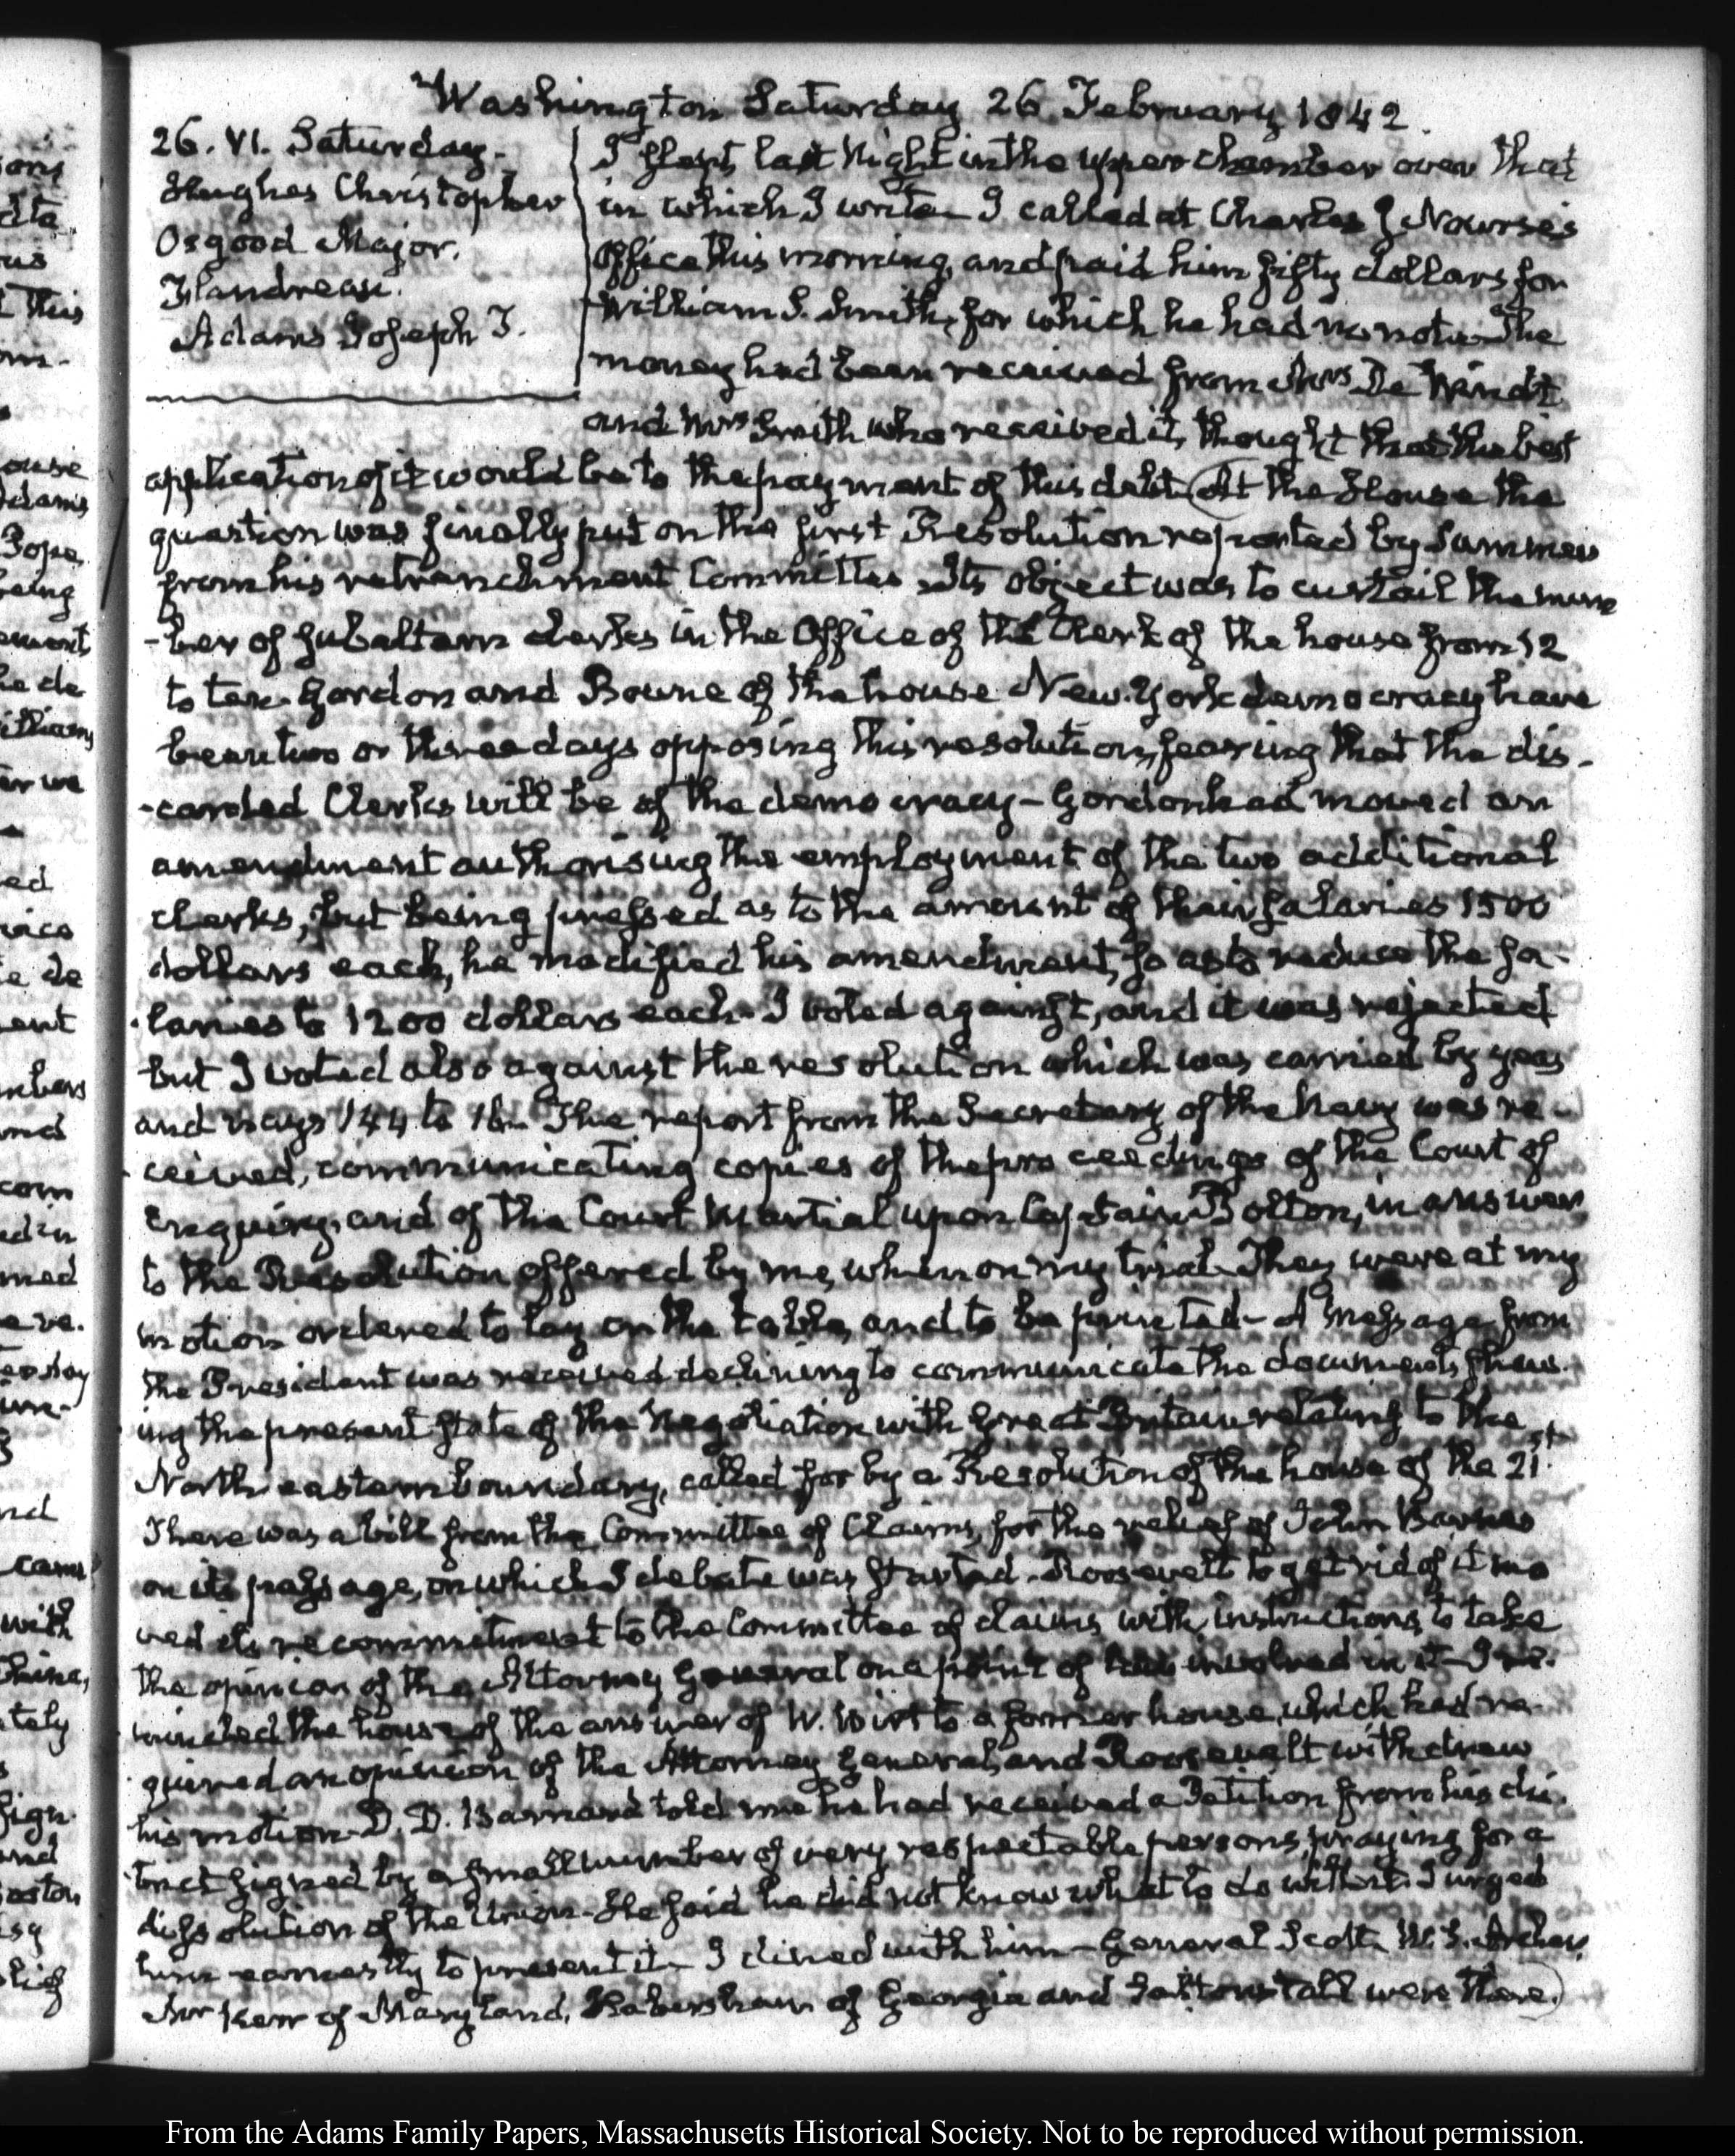 Washington Saturday 26 February 1842.
26. VI. Saturday.
Hughes Christopher
Osgood Major.
Flandreau.
Adams Joseph T.
I slept last Night in the upper chamber over that
in which I write. I called at Charles J Nourse's
Office this morning, and paid him fifty dollars for
William S. Smith, for which he had his note. The
money had been received from Mrs De Windt
and Mrs Smith who received it, thought that the best
application of it would be to the payment of this debt. At the House the
question was finally put on the first Resolution reported by Summers
from his retrenchment Committee. Its object was to curtail the num
-ber of subaltern clerks in the Office of the Clerk of the house from 12
to ten. Gordon and Bowne of the house New-York democracy have
been two or three days opposing this resolution, fearing that the dis-
-carded Clerks will be of the democracy - Gordon had moved an
amendment authorising the employment of the two additional
clerks, but being pressed as to the amount of their salaries 1500
dollars each, he modified his amendment, so as to reduce the sa-
-laries to 1200 dollars each. I voted against, and it was rejected
but I voted also against the resolution which was carried by yeas
and nays 144 to 16. The report from the Secretary of the Navy was re-
-ceived, communicating copies of the proceedings of the Court of
Enquiry, and of the Court Martial upon Captain Bolton, in answer
to the Resolution offered by me, when on my trial. They were at my
motion ordered to lay on the table, and to be printed - A Message from
the President was received declining to communicate the documents shew-
ing the present state of the Negotiation with Great-Britain relating to the
North eastern boundary, called for by a Resolution of the house of the 21st.
There was a bill from the Committee of Claims, for the relief of John
on its passage, on which a debate was started. Roosevelt to get rid of it mo
ved its recommitment to the Committee of claims with instructions to take
the opinion of the Attorney General on a point of law involved in it - I re-
minded the house of the answer of W. Wirt to a former house, which had re-
quired an opinion of the Attorney General, and Roosevelt withdrew
his motion. D. D. Barnard told me he had received a Petition from his dis-
trict signed by a small number of very respectable persons, praying for a
dissolution of the Union. He said he did not know what to do with it. I urged
him earnestly to present it - I dined with him - General Scott, W. S. Archer,
Mr Kerr of Maryland, Habersham of Georgia and Saltonstall were there.
From the Adams Family Papers, Massachusetts Historical Society. Not to be reproduced without permission.